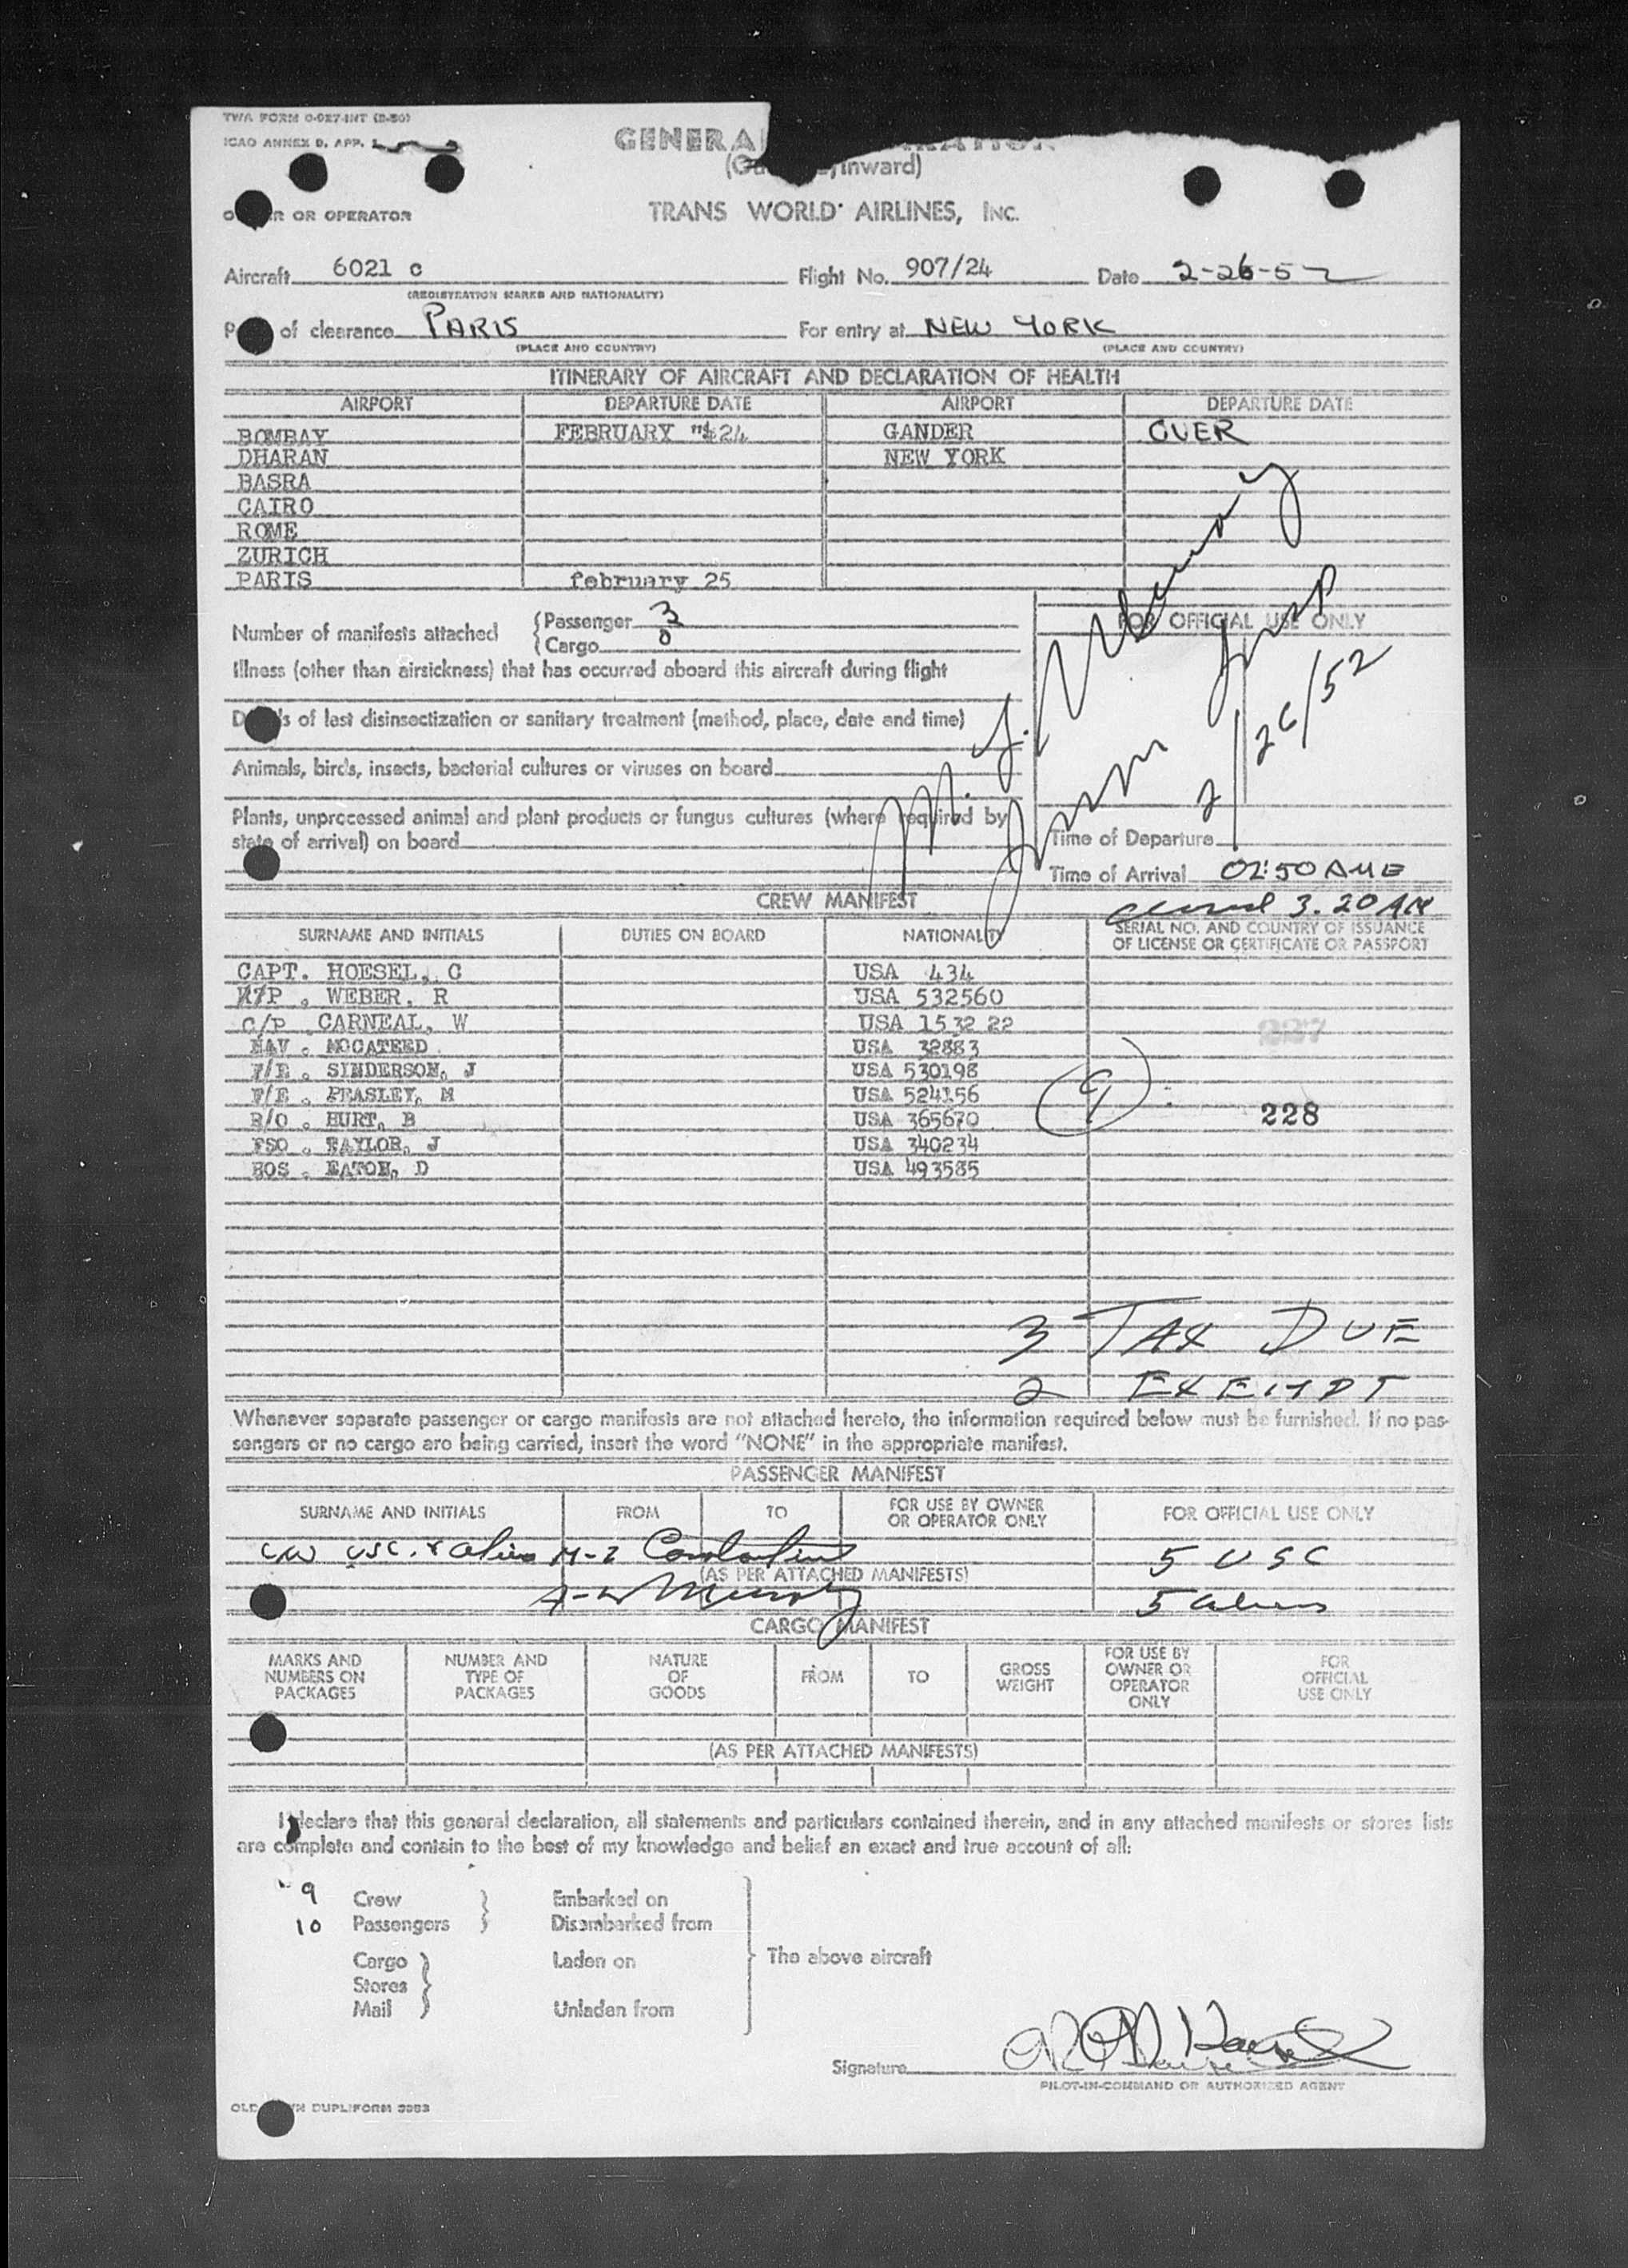 TWA FORM O-927-INT (2-50)
ICAO ANNEX 9, APP. 1
GENERAL
Inward)
OR OPERATOR
TRANS WORLD AIRLINES, INC.
Aircraft 6021 c Flight No. 907/24 Date 2-26-52
(REGISTRATION MARKS AND NATIONALITY)
of clearance PARIS For entry at NEW YORK
(PLACE AND COUNTRY) (PLACE AND COUNTRY)
ITINERARY OF AIRCRAFT AND DECLARATION OF HEALTH
AIRPORT DEPARTURE DATE AIRPORT DEPARTURE DATE
BOMBAY FEBRUARY 24 GANDER OVER
DHARAN NEW YORK
BASRA
CAIRO
ROME
ZURICH
PARIS february 25
Number of manifests attached
Passenger 3
Cargo 0
FOR OFFICIAL USE ONLY
Illness (other than airsickness) that has occurred aboard this aircraft during flight
2/26/52
of last disinsectization or sanitary treatment (method, place, date and time)
Animals, birds, insects, bacterial cultures or viruses on board
Plants, unprocessed animal and plant products or fungus cultures (where required by
state of arrival) on board
Time of Departure
Time of Arrival 02:50 AME
3.20 AM
CREW MANIFEST
SURNAME AND INITIALS DUTIES ON BOARD NATIONALITY SERIAL NO. AND COUNTRY OF ISSUANCE
OF LICENSE OR CERTIFICATE OR PASSPORT
CAPT. HOESEL, C USA 434
WEBER, R USA 532560
C/P . CARNEAL, W USA 1532 22
227
NAV . MCCATEED USA 32883
F/E . SINDERSON, J USA 530198
F/E . PEASLEY, M USA 524156
9
R/O . HURT, B USA 365670
228
FSO . TAYLOR, J USA 340234
HOS . EATON, D USA 493585
3 TAX DUE
2 EXEMPT
Whenever separate passenger or cargo manifests are not attached hereto, the information required below must be furnished. If no pas-
sengers or no cargo are being carried, insert the word "NONE" in the appropriate manifest.
PASSENGER MANIFEST
SURNAME AND INITIALS FROM TO FOR USE BY OWNER
OR OPERATOR ONLY FOR OFFICIAL USE ONLY
5 USC
(AS PER ATTACHED MANIFESTS)
5 aliens
CARGO MANIFEST
MARKS AND
NUMBERS ON
PACKAGES
NUMBER AND
TYPE OF
PACKAGES
NATURE
OF
GOODS
FROM
TO
GROSS
WEIGHT
FOR USE BY
OWNER OR
OPERATOR
ONLY
FOR
OFFICIAL
USE ONLY
(AS PER ATTACHED MANIFESTS)
I declare that this general declaration, all statements and particulars contained therein, and in any attached manifests or stores lists
are complete and contain to the best of my knowledge and belief an exact and true account of all:
9 Crew Embarked on
10 Passengers Disembarked from
Cargo Laden on The above aircraft
Stores
Mail Unladen from
Signature
PILOT-IN-COMMAND OR AUTHORIZED AGENT
DUPLIFORM 3983